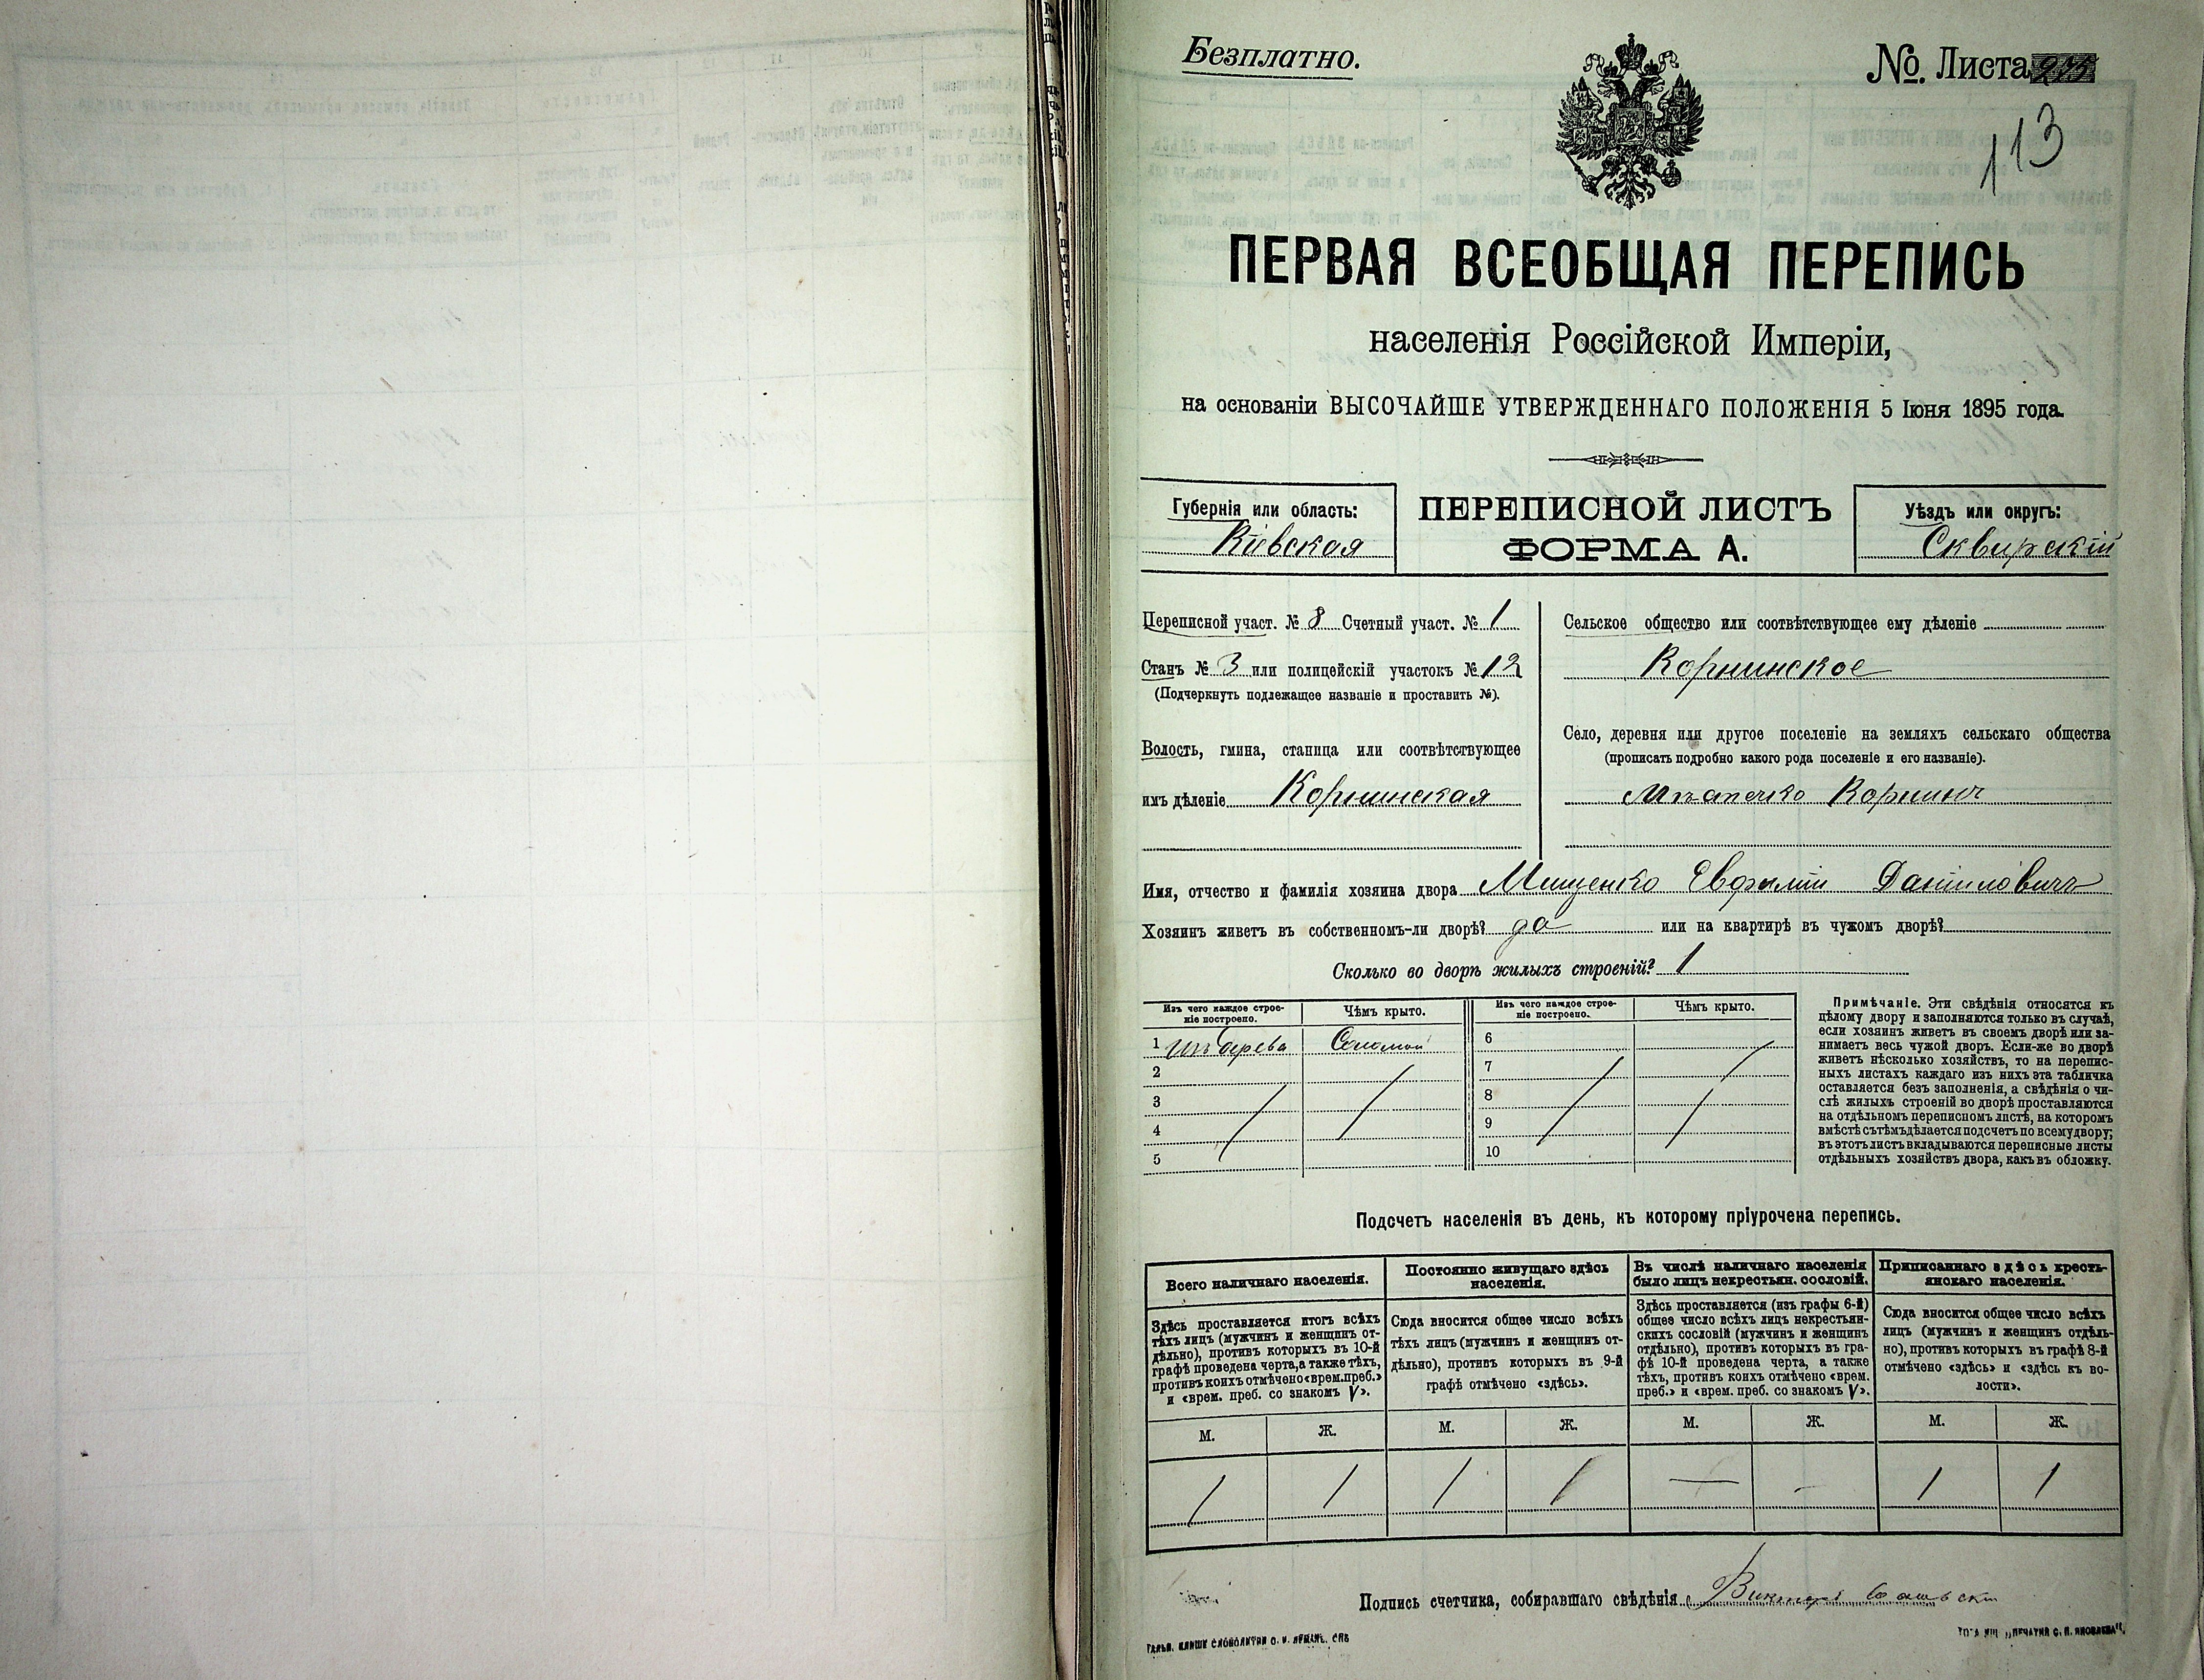 Безплатно.
№ Листа 275
113
ПЕРВАЯ ВСЕОБЩАЯ ПЕРЕПИСЬ
населенія Россійской Имперіи,
на основаніи ВЫСОЧАЙШЕ УТВЕРЖДЕННАГО ПОЛОЖЕНІЯ 5 Іюня 1895 года.
Губернія или область:
Кіевская
ПЕРЕПИСНОЙ ЛИСТЪ
ФОРМА А.
Уѣздъ или округъ:
Сквирскій
Переписной участ. № 8 Счетный участ. № 1
Станъ № 3 или полицейскій участокъ № 12
(Подчеркнуть подлежащее названіе и проставить №).
Волость, гмина, станица или соотвѣтствующее
имъ дѣленіе Корнинская
Сельское общество или соотвѣтствующее ему дѣленіе
Корнинское
Село, деревня или другое поселеніе на земляхъ сельскаго общества
(прописать подробно какого рода поселеніе и его названіе).
Мѣстечко Корнинъ
Имя, отчество и фамилія хозяина двора Мищенко Евфимій Даніиловичъ
Хозяинъ живетъ въ собственномъ-ли дворѣ? да или на квартирѣ въ чужомъ дворѣ?
Сколько во дворѣ жилыхъ строеній? 1
Изъ чего каждое строе-
ніе построено.
Чѣмъ крыто.
Изъ чего каждое строе-
ніе построено.
Чѣмъ крыто.
1 Изъ дерева Соломой 6
2 7
3 8
4 9
5 10
Примѣчаніе. Эти свѣдѣнія относятся къ
цѣлому двору и заполняются только въ случаѣ,
если хозяинъ живетъ въ своемъ дворѣ или за-
нимаетъ весь чужой дворъ. Если-же во дворѣ
живетъ нѣсколько хозяйствъ, то на перепис-
ныхъ листахъ каждаго изъ нихъ эта табличка
оставляется безъ заполненія, а свѣдѣнія о чи-
слѣ жилыхъ строеній во дворѣ проставляются
на отдѣльномъ переписномъ листѣ, на которомъ
вмѣстѣ съ тѣмъ дѣлается подсчетъ по всему двору;
въ этотъ листъ вкладываются переписные листы
отдѣльныхъ хозяйствъ двора, какъ въ обложку.
Подсчетъ населенія въ день, къ которому пріурочена перепись.
Всего наличнаго населенія.
Здѣсь проставляется итогъ всѣхъ
тѣхъ лицъ (мужчинъ и женщинъ от-
дѣльно), противъ которыхъ въ 10-й
графѣ проведена черта, а также тѣхъ,
противъ коихъ отмѣчено «врем. преб.»
и «врем. преб. со знакомъ V».
Постоянно живущаго здѣсь
населенія.
Сюда вносится общее число всѣхъ
тѣхъ лицъ (мужчинъ и женщинъ от-
дѣльно), противъ которыхъ въ 9-й
графѣ отмѣчено «здѣсь».
Въ числѣ наличнаго населенія
было лицъ некрестьян. сословій.
Здѣсь проставляется (изъ графы 6-й)
общее число всѣхъ лицъ некрестьян-
скихъ сословій (мужчинъ и женщинъ
отдѣльно), противъ которыхъ въ гра-
фѣ 10-й проведена черта, а также
тѣхъ, противъ коихъ отмѣчено «врем.
преб.» и «врем. преб. со знакомъ V».
Приписаннаго здѣсь кресть-
янскаго населенія.
Сюда вносится общее число всѣхъ
лицъ (мужчинъ и женщинъ отдѣль-
но), противъ которыхъ въ графѣ 8-й
отмѣчено «здѣсь» и «здѣсь къ во-
лости».
М. Ж. М. Ж. М. Ж. М. Ж.
1 1 1 1 — - 1 1
Подпись счетчика, собиравшаго свѣдѣнія